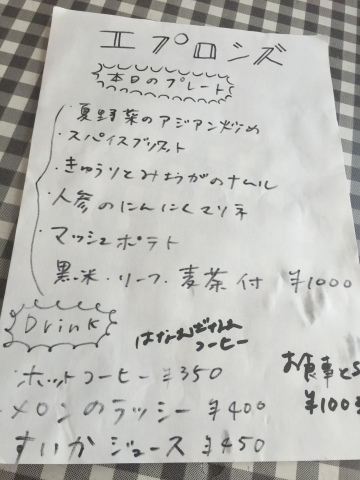 エプロンズ
本日のプレート
・夏野菜のアジアン炒め
・スパイスブリスケット
・きゅうりとみょうがのナムル
・人参のにんにくマリネ
・マッシュポテト
黒米・リーフ・麦茶付 ¥1000
Drink
コーヒー
ホットコーヒー ¥350
メロンのラッシー ¥400
すいかジュース ¥450
お食事とS
¥100